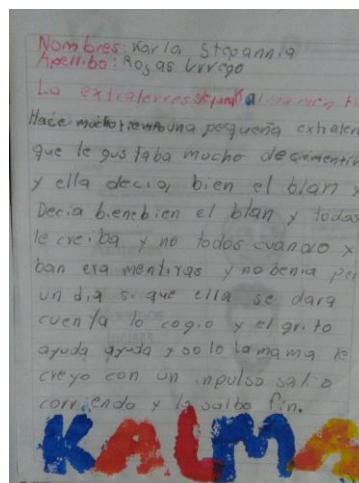 Nombres: Karla Stepannia
Apellibo: Rojas Urrego
La extraterrestre Kalma
Hace mucho tiempo una pequeña extrater
que le gustaba mucho de
y ella decia, bien el blan y
Decia bienebien el blan y todas
le creiba y no todos cuando x
ban era mentiras y no benia per
un dia si que ella se dara
cuenta lo cogio y el grito
ayuda ayuda y solo la mama le
creyo con un inpulso salio
corriendo y la salbo fin.
KALMA